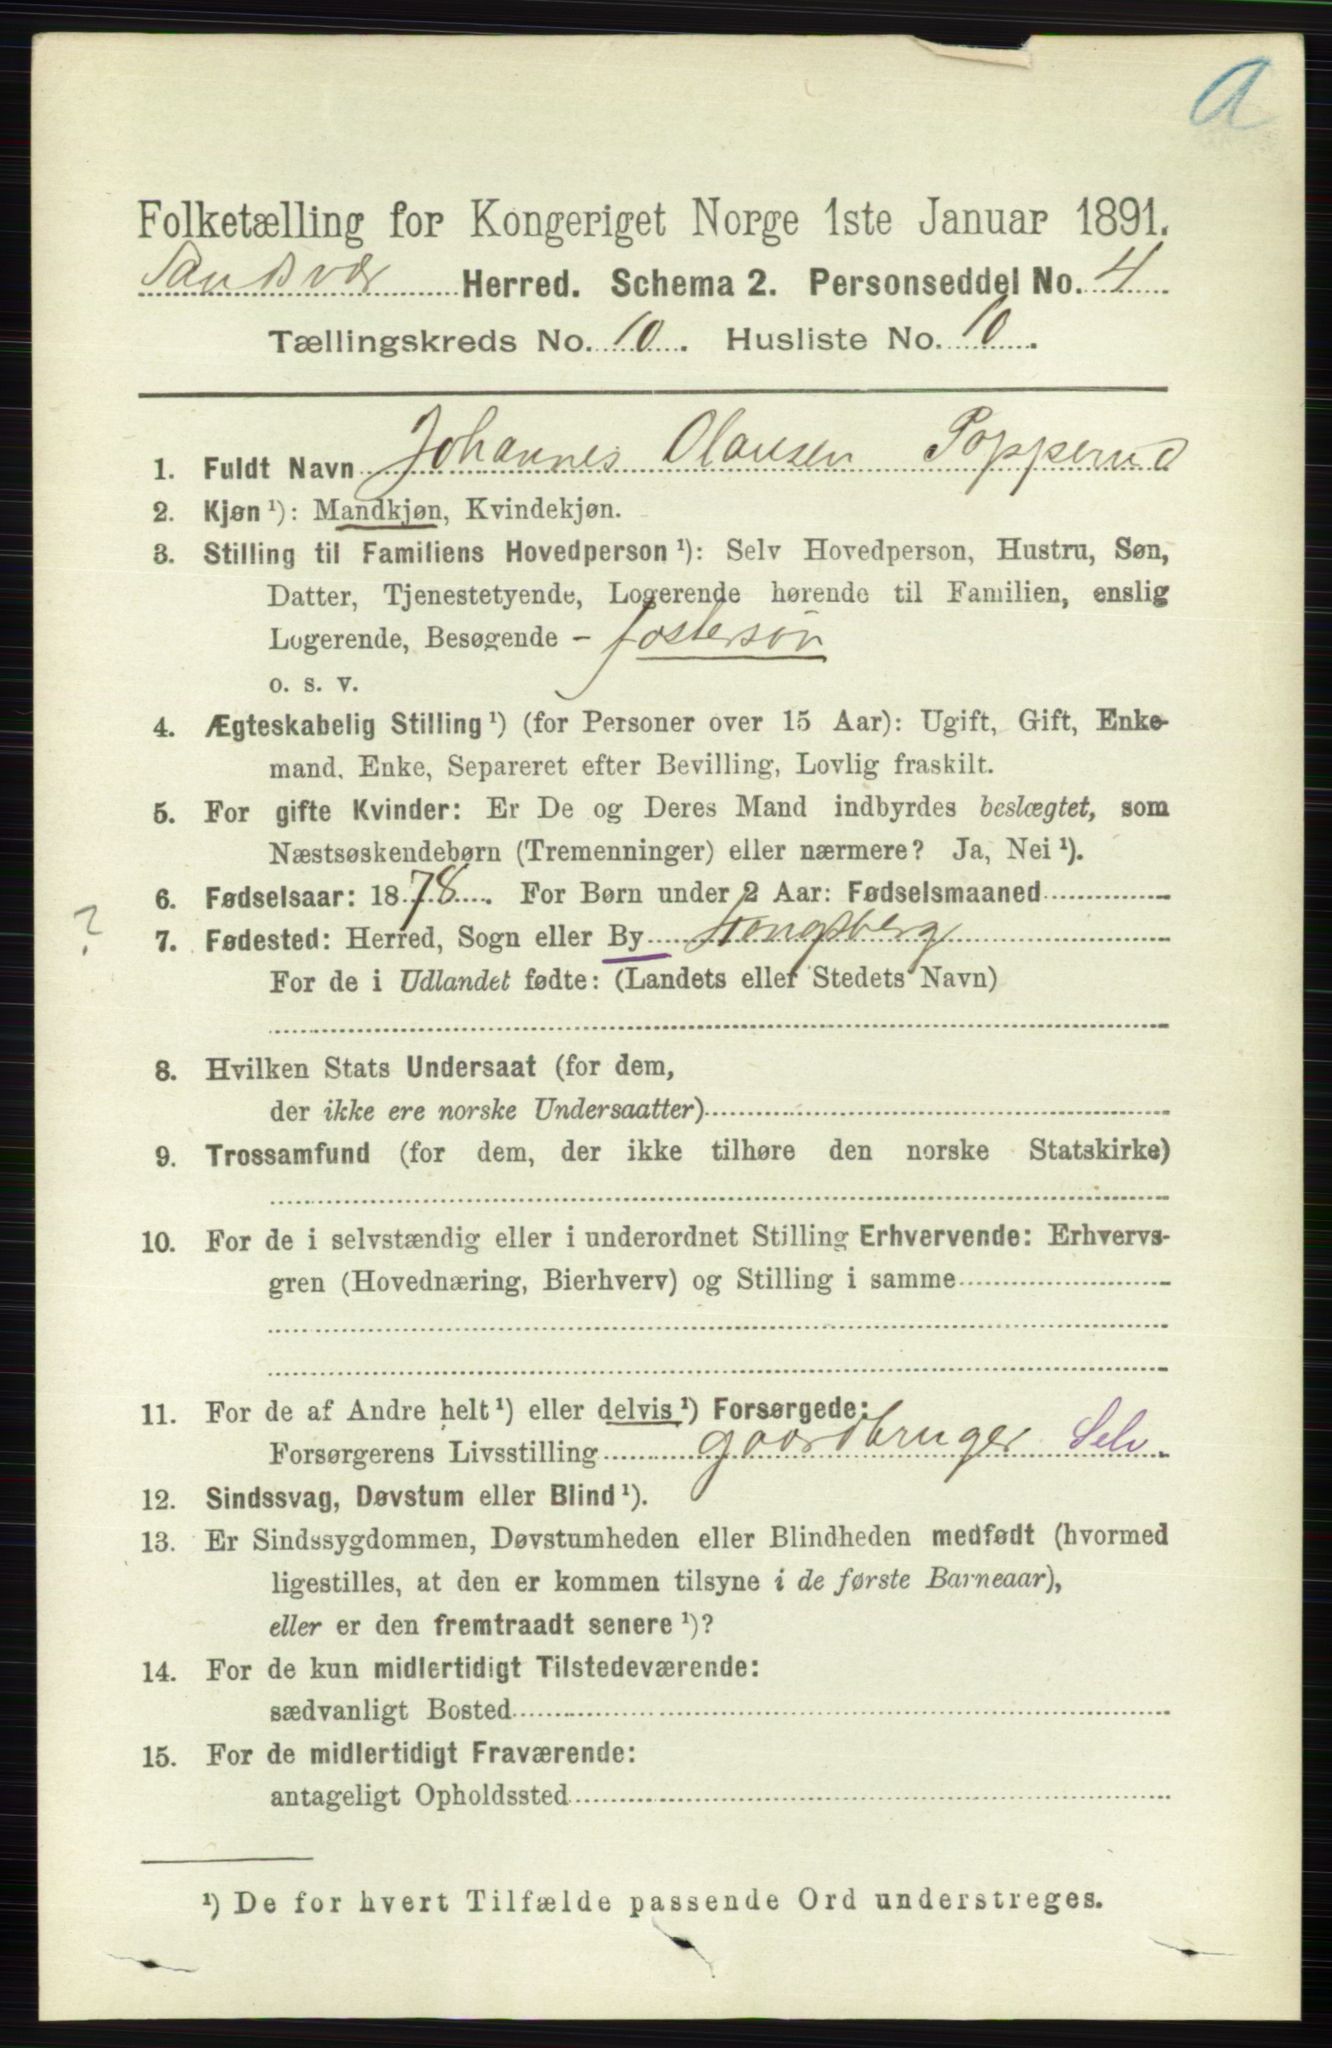 a
Folketælling for Kongeriget Norge 1ste Januar 1891.
Sandsvær Herred. Schema 2. Personseddel No. 4
Tællingskreds No. 10. Husliste No. 10.
1. Fuldt Navn Johannes Olausen Popperud
2. Kjøn ¹): Mandkjøn, Kvindekjøn.
3. Stilling til Familiens Hovedperson ¹): Selv Hovedperson, Hustru, Søn,
Datter, Tjenestetyende, Logerende hørende til Familien, enslig
Logerende, Besøgende - fostersøn
o. s. v.
4. Ægteskabelig Stilling ¹) (for Personer over 15 Aar): Ugift, Gift, Enke-
mand, Enke, Separeret efter Bevilling, Lovlig fraskilt.
5. For gifte Kvinder: Er De og Deres Mand indbyrdes beslægtet, som
Næstsøskendebørn (Tremenninger) eller nærmere? Ja, Nei ¹).
6. Fødselsaar: 1878. For Børn under 2 Aar: Fødselsmaaned
?
7. Fødested: Herred, Sogn eller By Kongsberg
For de i Udlandet fødte: (Landets eller Stedets Navn)
8. Hvilken Stats Undersaat (for dem,
der ikke ere norske Undersaatter)
9. Trossamfund (for dem, der ikke tilhøre den norske Statskirke)
10. For de i selvstændig eller i underordnet Stilling Erhvervende: Erhvervs-
gren (Hovednæring, Bierhverv) og Stilling i samme
11. For de af Andre helt ¹) eller delvis ¹) Forsørgede:
Forsørgerens Livsstilling gaardbruger Selv.
12. Sindssvag, Døvstum eller Blind ¹).
13. Er Sindssygdommen, Døvstumheden eller Blindheden medfødt (hvormed
ligestilles, at den er kommen tilsyne i de første Barneaar),
eller er den fremtraadt senere ¹)?
14. For de kun midlertidigt Tilstedeværende:
sædvanligt Bosted
15. For de midlertidigt Fraværende:
antageligt Opholdssted
¹) De for hvert Tilfælde passende Ord understreges.